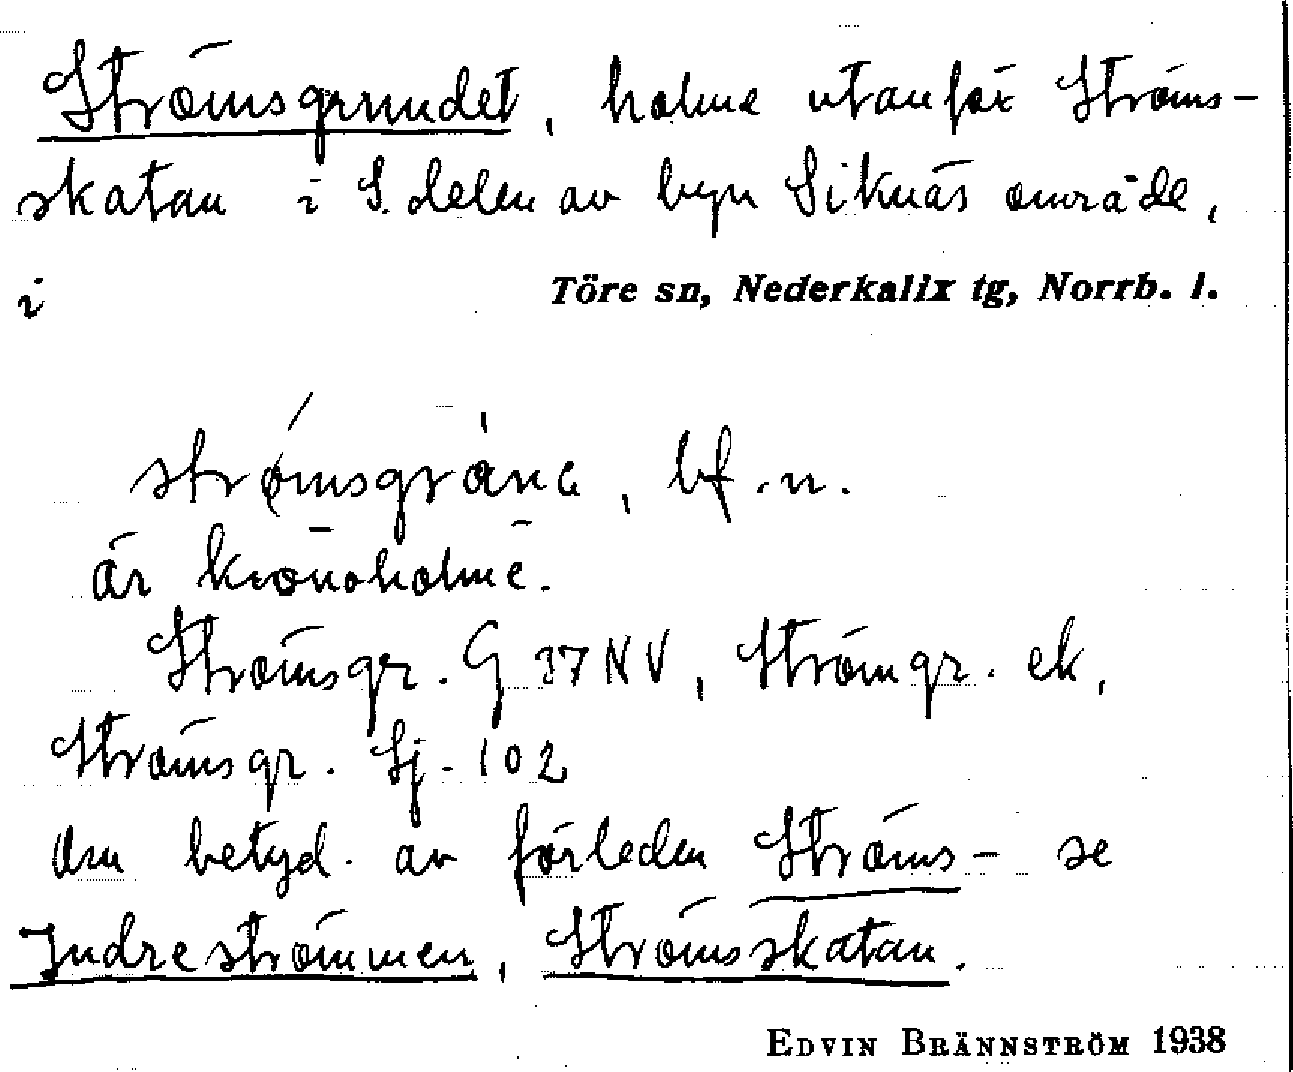 Strömsgrundet, holme utanför Ströms-
skatan i S. delen av byn Siknäs område,
i Töre sn, Nederkalix tg, Norrb. l.
strømsgrɑ̀na, bf. n.
är kronoholme.
Strömsgr. G 37 NV, Strömgr. ek,
Strömsgr. Sj. 102
Om betyd. av förleden Ströms- se
Indreströmmen, Strömsskatan.
EDVIN BRÄNNSTRÖM 1938